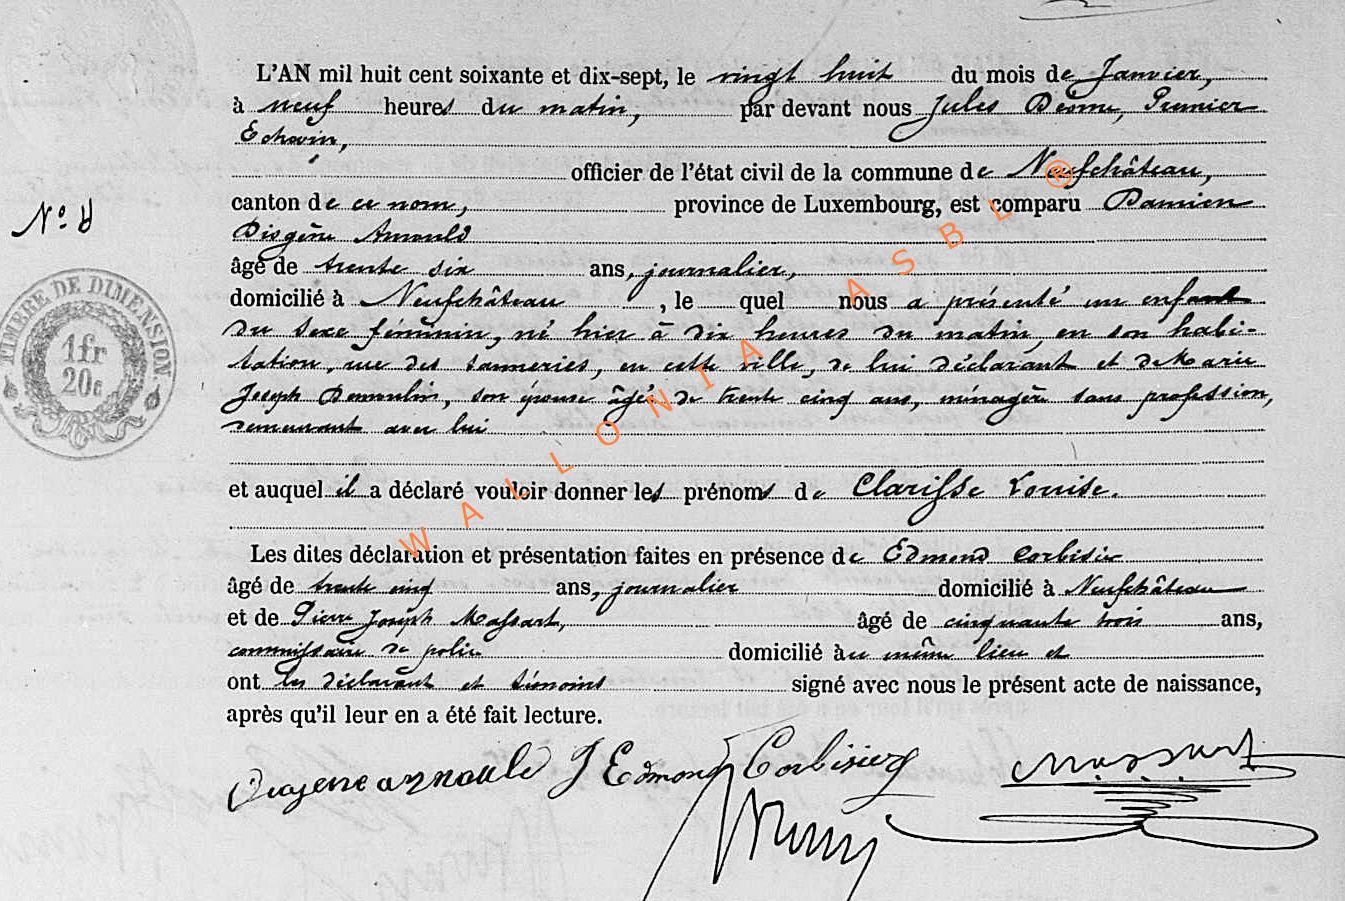 L'AN mil huit cent soixante et dix-sept, le vingt huit du mois de Janvier,
à neuf heures du matin, par devant nous Jules Premier
Echevin,
officier de l'état civil de la commune de Neufchâteau,
canton de ce nom, province de Luxembourg, est comparu Damien
Diogène Arnould
âgé de trente six ans, journalier,
domicilié à Neufchâteau , le quel nous a présenté un enfant
du sexe féminin, né hier à dix heures du matin, en son habi-
tation, rue des tanneries, en cette ville, de lui déclarant et de Marie
Joseph Demoulin, son épouse âgée de trente cinq ans, ménagère sans profession,
demeurant avec lui
et auquel il a déclaré vouloir donner les prénoms de Clarisse Louise.
Les dites déclaration et présentation faites en présence de Edmond Corbisier
âgé de trente cinq ans, journalier domicilié à Neufchâteau
et de Pierre Joseph Massart, âgé de cinquante trois ans,
commissaire de police domicilié au même lieu et
ont les déclarant et témoins signé avec nous le présent acte de naissance,
après qu'il leur en a été fait lecture.
Diogene arnould J Edmond Corbisier Massart
N°
TIMBRE DE DIMENSION
1fr
20c
WALLONIA ASBL ®